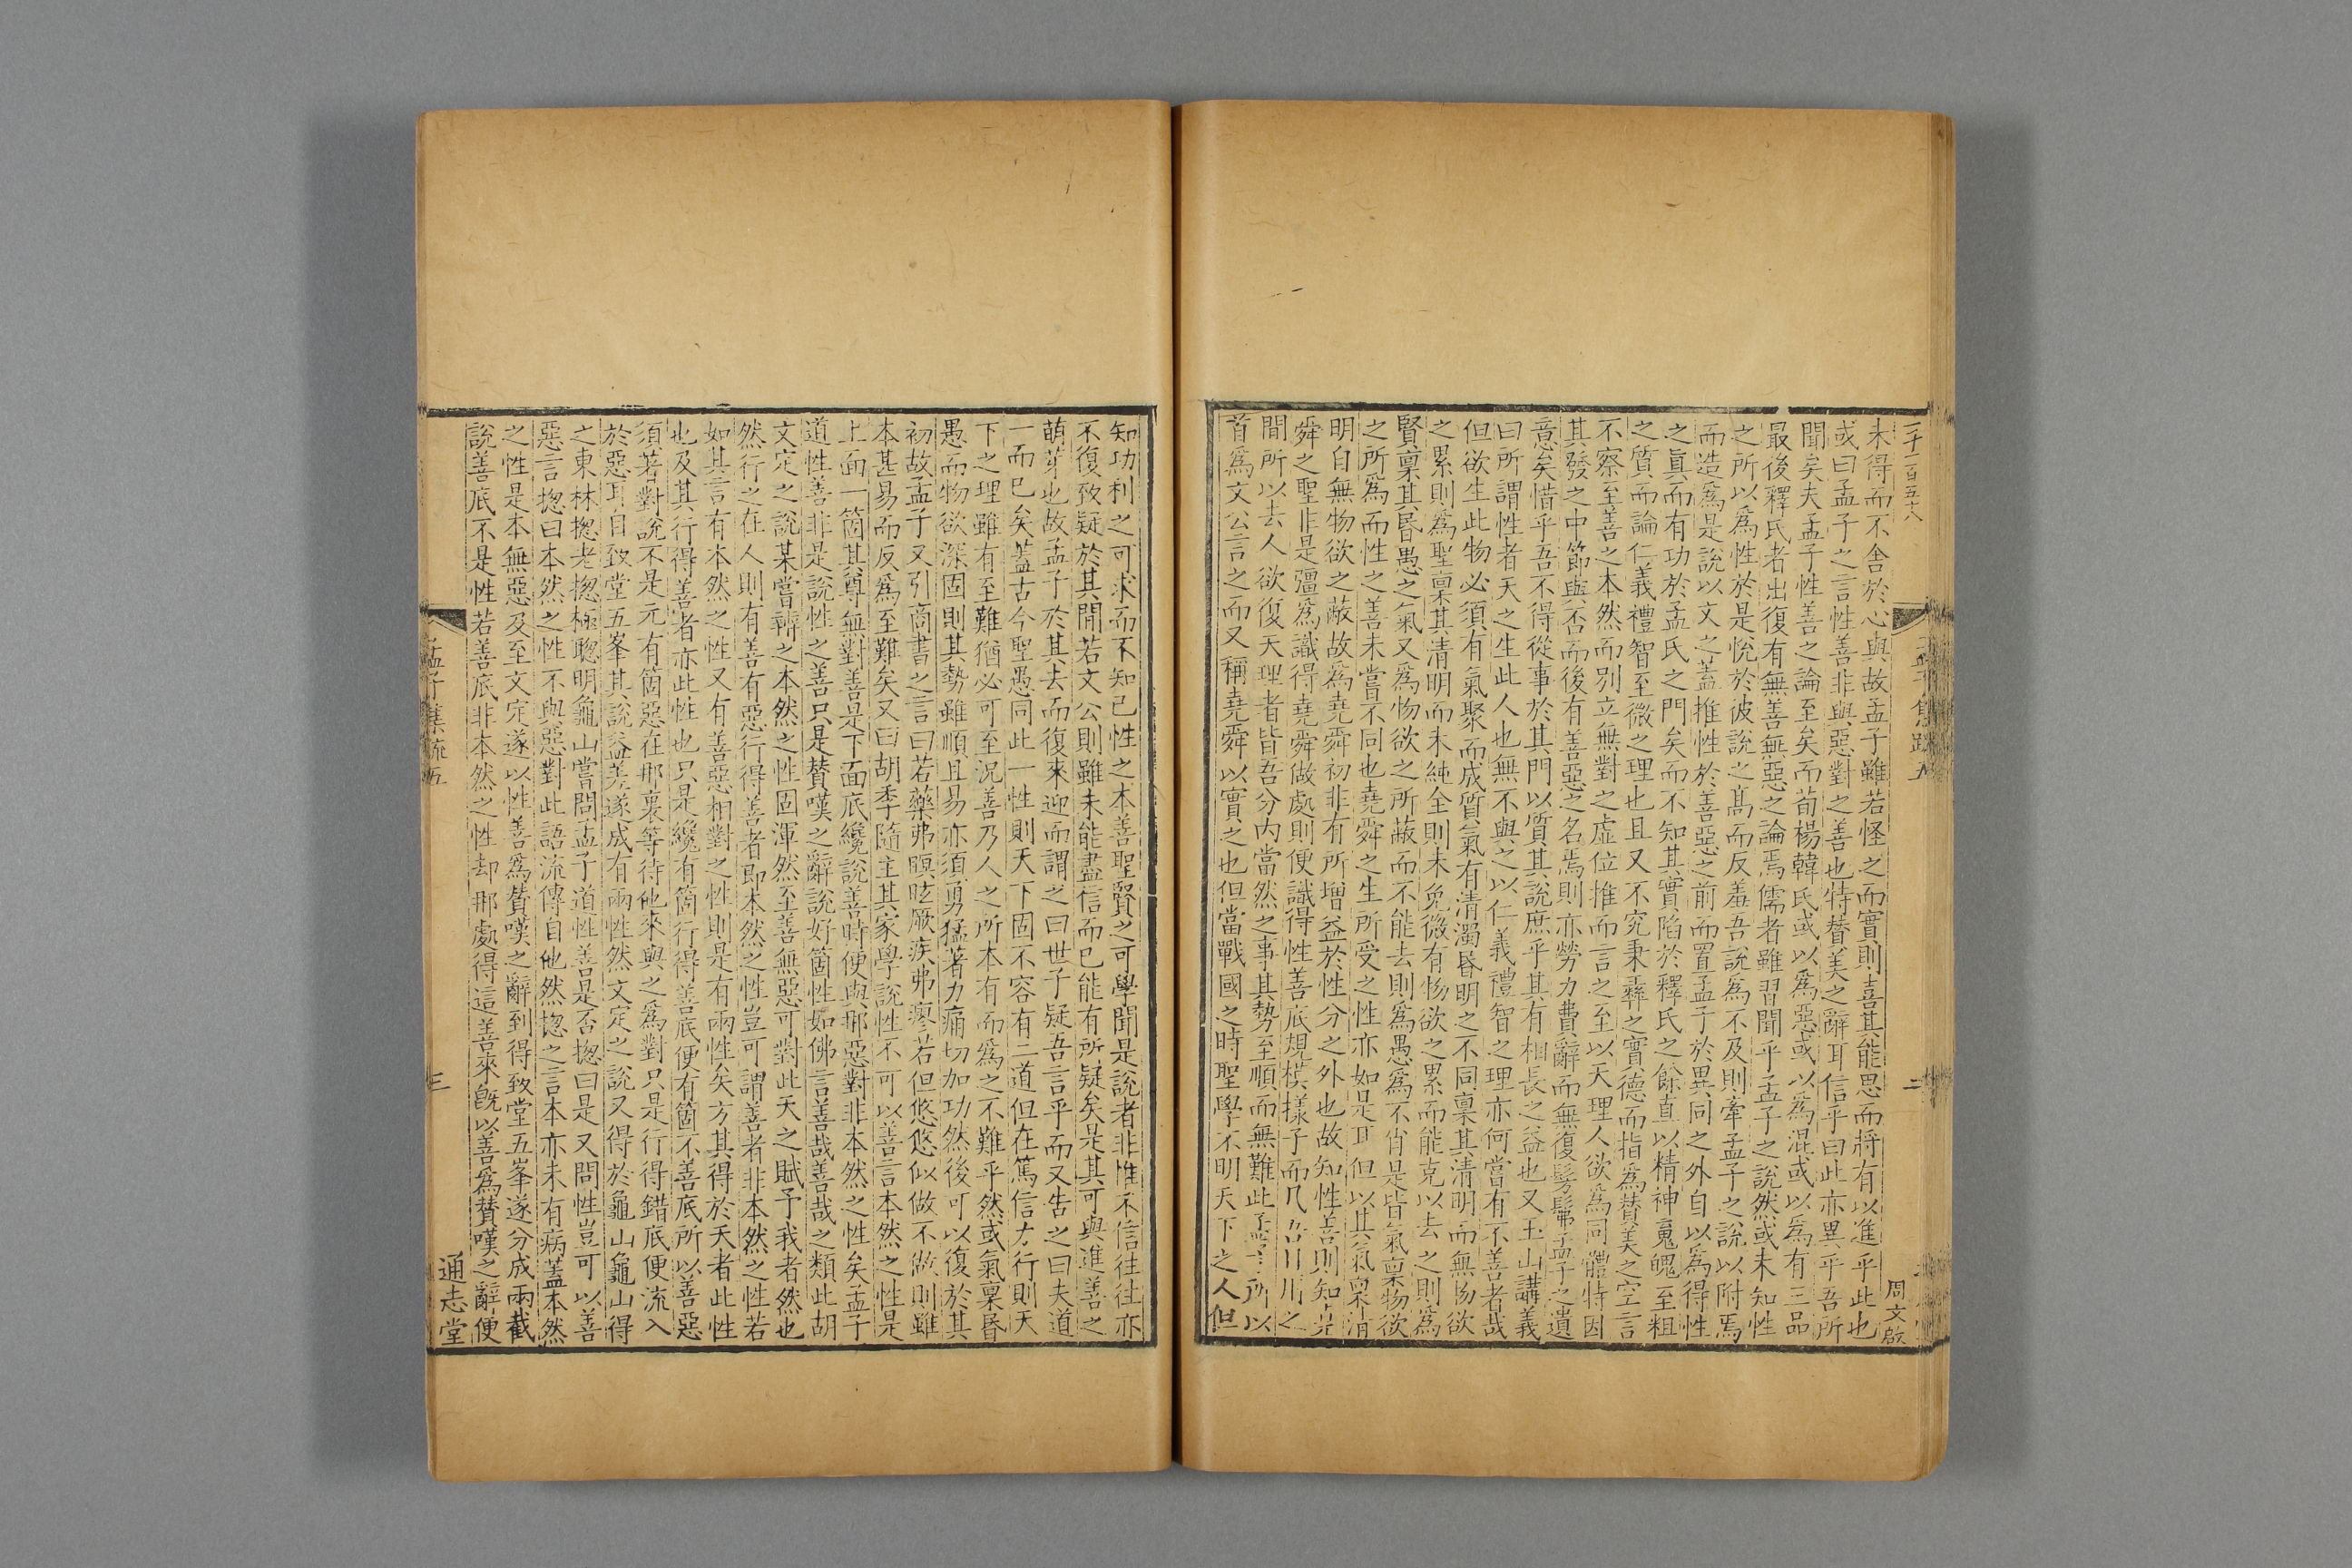 一千一百五十八
周文啟
未得而不舍於心與故孟子雖若怪之而實則喜其能思而將有以進乎此也
或曰孟子之言性善非與惡對之善也特賛美之辭耳信乎曰此亦異乎吾所
聞矣夫孟子性善之論至矣而荀楊韓氏或以為惡或以為混或以為有三品
最後釋氏者出復有無善無惡之論焉儒者雖習聞乎孟子之說然或未知性
之所以為性於是恱於彼說之髙而反羞吾說為不及則牽孟子之說以附焉
而造為是說以文之蓋推性於善惡之前而置孟子於異同之外自以為得性
之眞而有功於孟氏之門矣而不知其實陷於釋氏之餘直以精神䰟魄至粗
之質而論仁義禮智至微之理也且又不究秉彛之實德而指為賛美之空言
不察至善之本然而別立無對之虛位推而言之至以天理人欲為同體特因
其發之中節與否而後有善惡之名焉則亦勞力費辭而無復髣髴孟子之遺
意矣惜乎吾不得從事於其門以質其說庶乎其有相長之益也又玉山講義
曰所謂性者天之生此人也無不與之以仁義禮智之理亦何嘗有不善者哉
但欲生此物必須有氣聚而成質氣有清濁昏明之不同稟其清明而無物欲
之累則為聖稟其清明而未純全則未免微有物欲之累而能克以去之則為
賢稟其昏愚之氣又為物欲之所蔽而不能去則為愚為不肖是皆氣稟物欲
之所為而性之善未嘗不同也堯舜之生所受之性亦如是耳但以其氣稟清
明自無物欲之蔽故為堯舜初非有所增益於性分之外也故知性善則知堯
舜之聖非是彊為識得堯舜做處則便識得性善底規模樣子而凡吾日用之
間所以去人欲復天理者皆吾分内當然之事其勢至順而無難此孟子所以
首為文公言之而又稱堯舜以實之也但當戰國之時聖學不明天下之人但
孟子集疏五
二
知功利之可求而不知已性之本善聖賢之可學聞是說者非惟不信往往亦
不復致疑於其間若文公則雖未能盡信而已能有所疑矣是其可與進善之
萌芽也故孟子於其去而復來迎而謂之曰世子疑吾言乎而又告之曰夫道
一而已矣蓋古今聖愚同此一性則天下固不容有二道但在篤信力行則天
下之理雖有至難猶必可至況善乃人之所本有而為之不難乎然或氣稟昏
愚而物欲深固則其勢雖順且易亦須勇猛著力痛切加功然後可以復於其
初故孟子又引商書之言曰若藥弗瞑眩厥疾弗瘳若但悠悠似做不做則雖
本甚易而反為至難矣又曰胡季隨主其家學說性不可以善言本然之性是
上面一箇其尊無對善是下面底纔說善時便與那惡對非本然之性矣孟子
道性善非是說性之善只是賛嘆之辭說好箇性如佛言善哉善哉之類此胡
文定之說某嘗辨之本然之性固渾然至善無惡可對此天之賦予我者然也
然行之在人則有善有惡行得善者即本然之性豈可謂善者非本然之性若
如其言有本然之性又有善惡相對之性則是有兩性矣方其得於天者此性
也及其行得善者亦此性也只是纔有箇行得善底便有箇不善底所以善惡
須著對說不是元有箇惡在那裏等待他來與之為對只是行得錯底便流入
於惡耳自致堂五峯其說益差遂成有兩性然文定之說又得於龜山龜山得
之東林摠老摠極聰明龜山嘗問孟子道性善是否摠曰是又問性豈可以善
惡言摠曰本然之性不與惡對此語流傳自他然摠之言本亦未有病蓋本然
之性是本無惡及至文定遂以性善為賛嘆之辭到得致堂五峯遂分成兩截
說善底不是性若善底非本然之性却那處得這善來既以善為賛嘆之辭便
孟子集疏五
三
通志堂